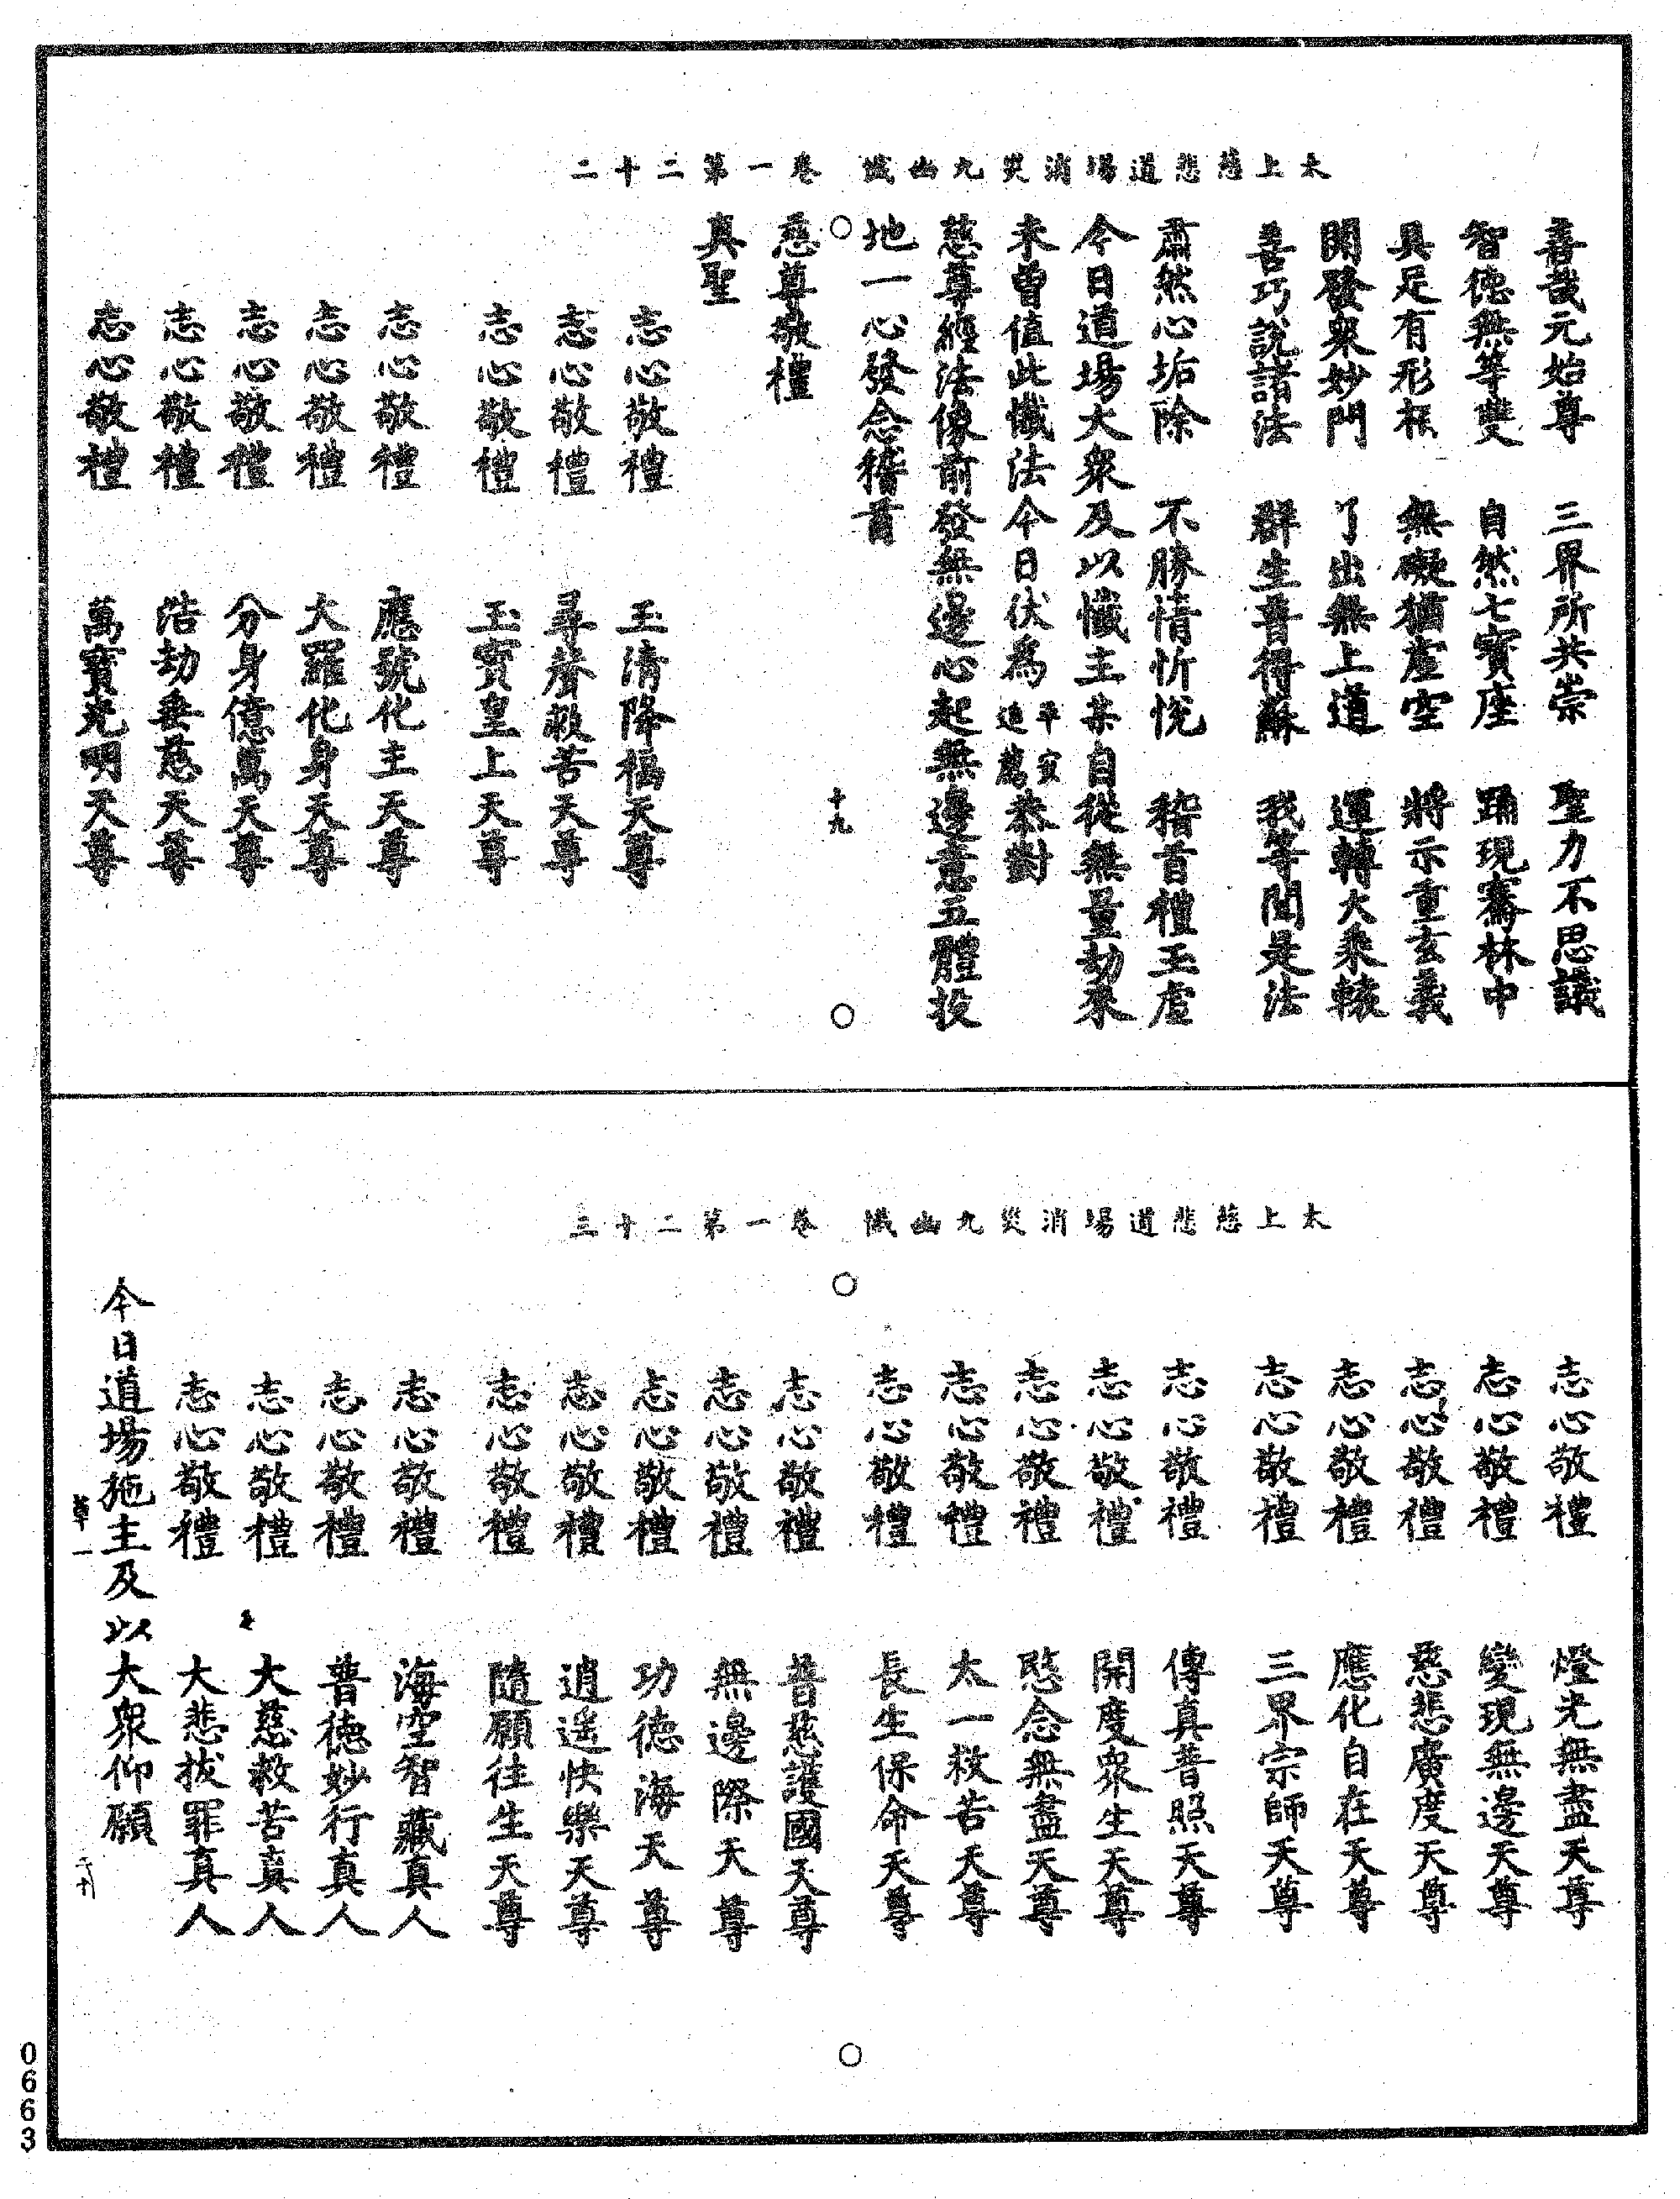 太上慈悲道場消災九幽懺　卷一第二十二
善哉元始尊　三界所共崇　聖力不思議
智德無等雙　自然七寶座　踊現騫林中
具足有形相　無礙猶虛空　將示重玄義
開發衆妙門　了出無上道　運轉大乘轅
善巧說諸法　群生普得蘇　我等聞是法
肅然心垢除　不勝情忻悅　稽首禮玉虛
今日道場大衆及以懺主某自從無量劫來
未曾值此懺法今日伏為平安追薦恭對
慈尊經法像前發無邊心起無邊意五體投
地一心發念稽首
十九
慈尊敬禮
真聖
志心敬禮　玉清降福天尊
志心敬禮　尋聲救苦天尊
志心敬禮　玉寶皇上天尊
志心敬禮　應號化主天尊
志心敬禮　大羅化身天尊
志心敬禮　分身億萬天尊
志心敬禮　浩劫垂慈天尊
志心敬禮　萬寶光明天尊
太上慈悲道場消災九幽懺　卷一第二十三
志心敬禮　燈光無盡天尊
志心敬禮　變現無邊天尊
志心敬禮　慈悲廣度天尊
志心敬禮　應化自在天尊
志心敬禮　三界宗師天尊
志心敬禮　傳真普照天尊
志心敬禮　開度衆生天尊
志心敬禮　愍念無盡天尊
志心敬禮　太一救苦天尊
志心敬禮　長生保命天尊
志心敬禮　普慈護國天尊
志心敬禮　無邊際天尊
志心敬禮　功德海天尊
志心敬禮　逍遙快樂天尊
志心敬禮　隨願往生天尊
志心敬禮　海空智藏真人
志心敬禮　普德妙行真人
志心敬禮　大慈救苦真人
志心敬禮　大悲拔罪真人
今日道場施主及以大衆仰願
草一
0663